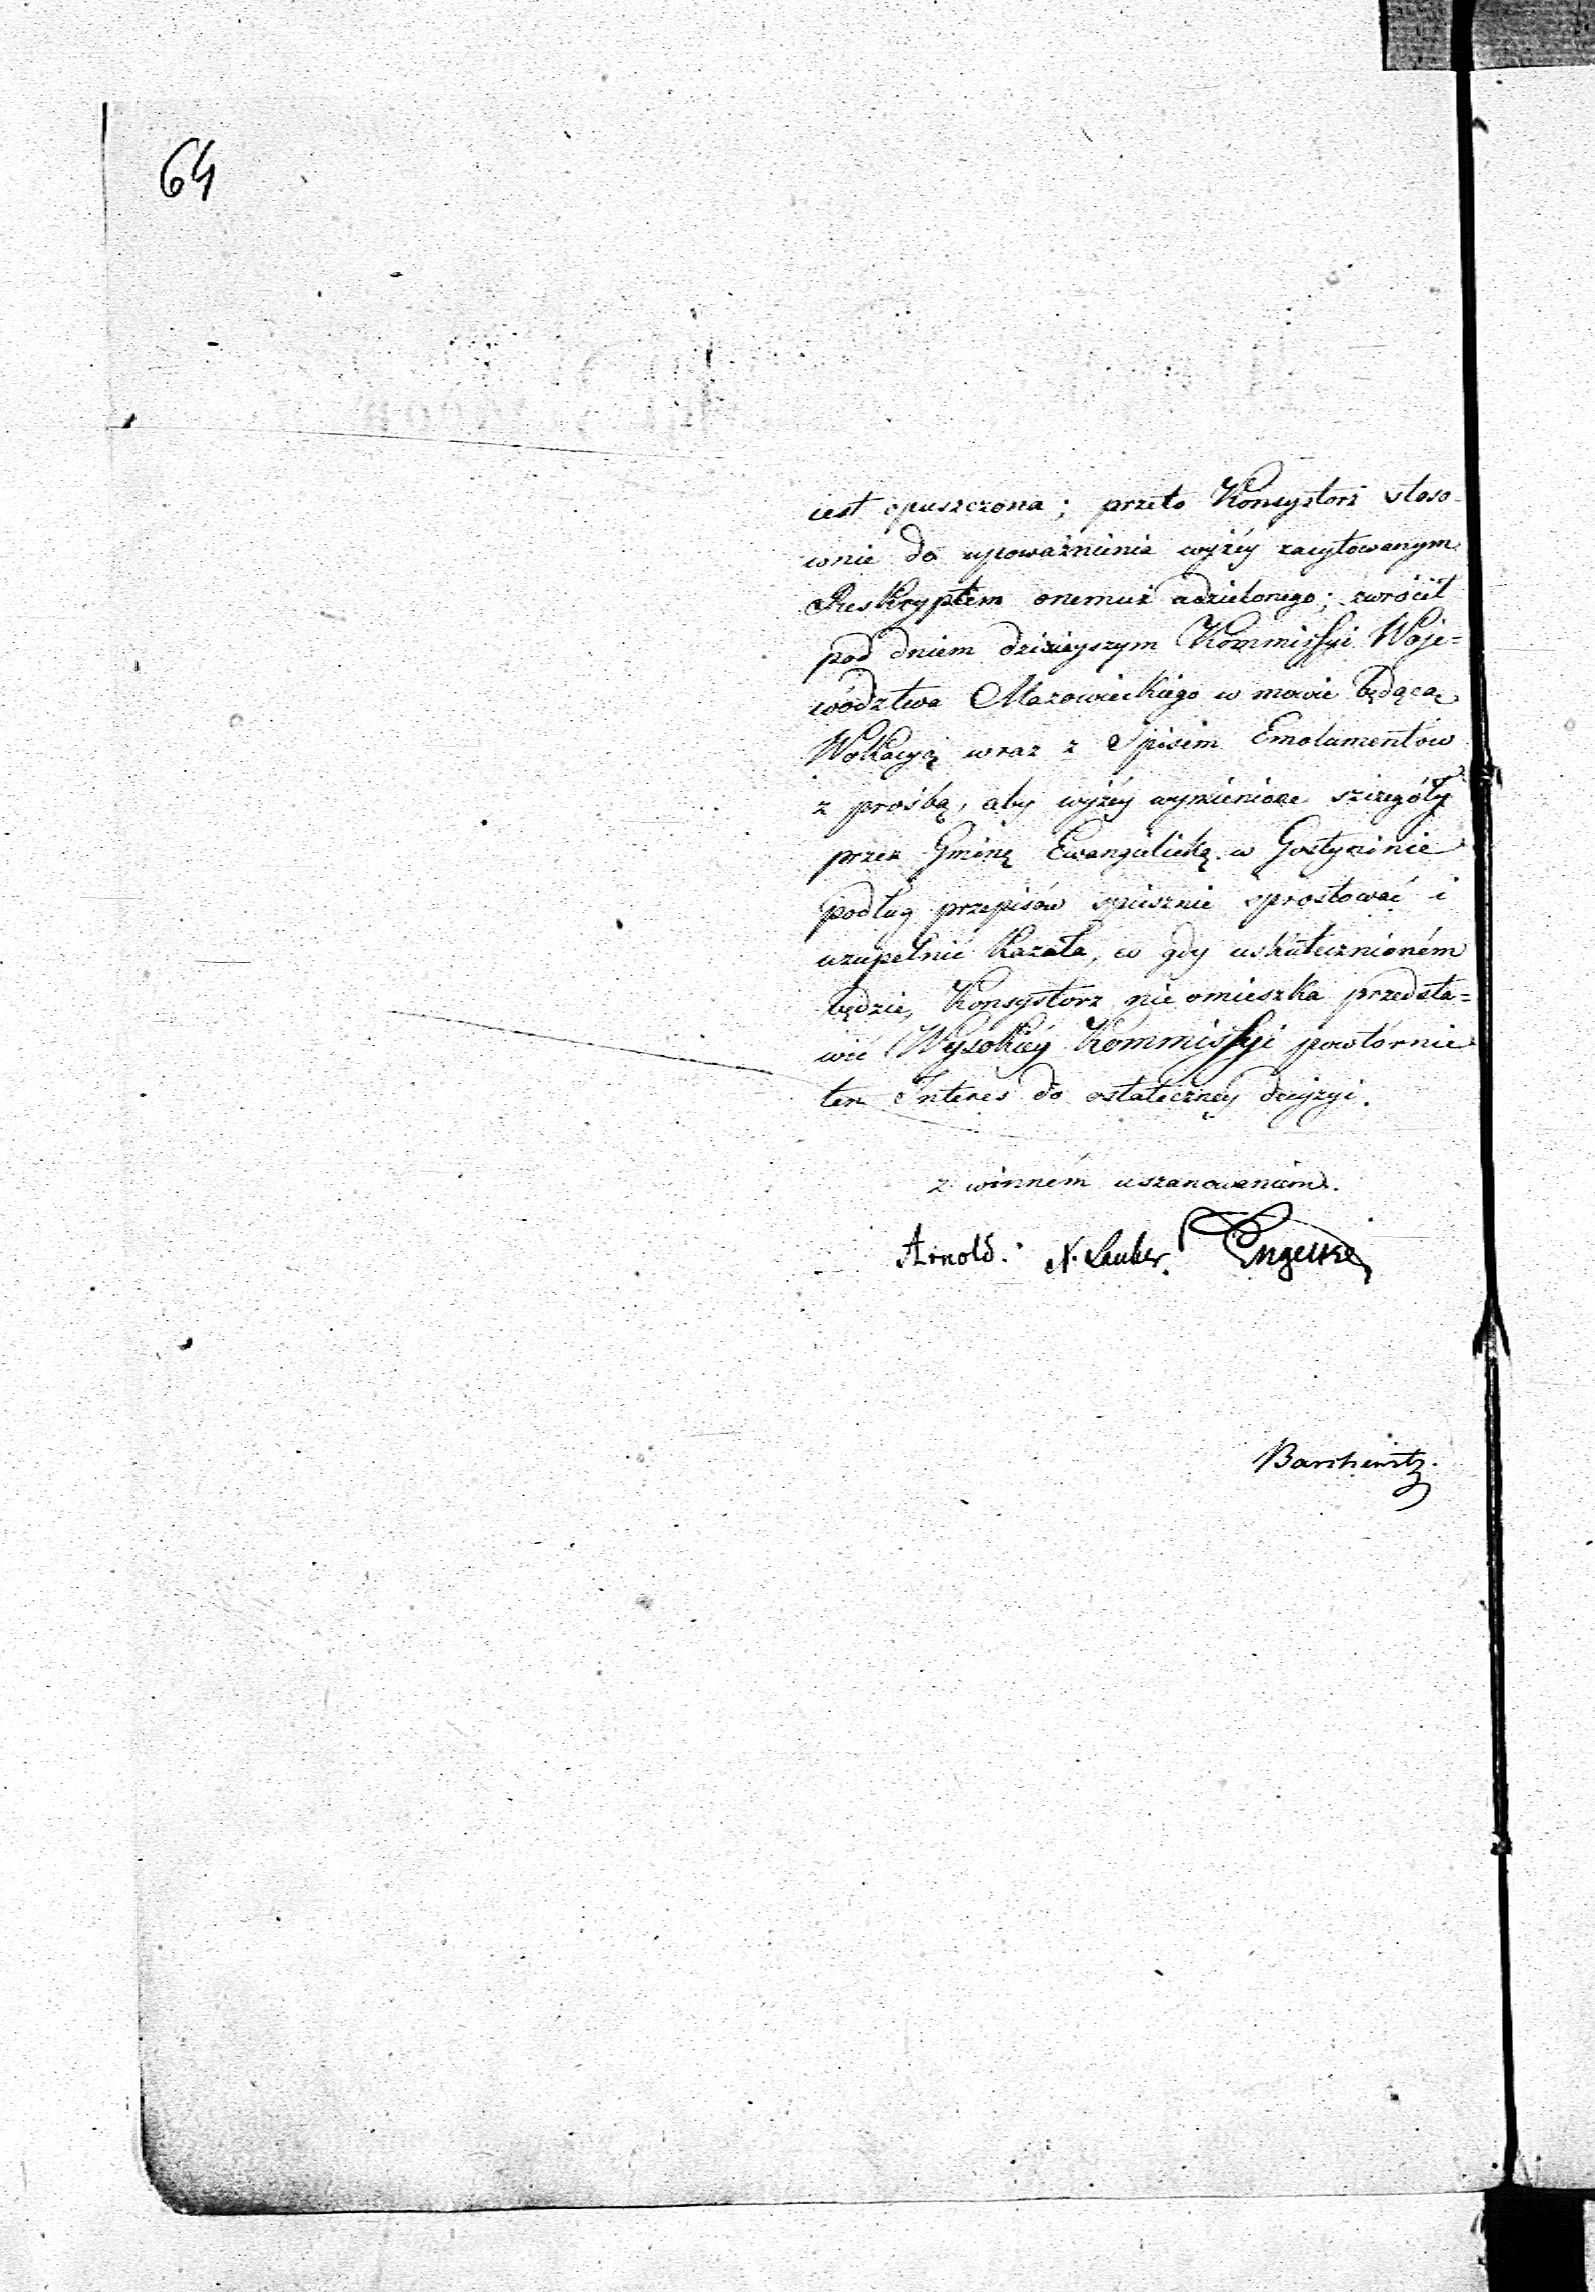 64
iest opuszczona; przeto Konsystorz stoso-
wnie do upoważnienia wyżéy zacytowanym
Reskryptem onemuż udzielonego; zwrócił
pod dniem dzisieyszym Kommissyi Woje=
wództwa Mazowieckiego w mowie będącą
Wokacyą wraz z Spisem Emolumentów
z prośbą, aby wyżéy wymienione szczegóły
przez Gminę Ewangielicką w Gostyninie
podług przepisów spiesznie sprostować i
uzupełnić kazała, co gdy uskutecznioném
będzie, Konsystorz nie omieszka przedsta=
wić Wysokiéy Kommissyi powtórnie
ten Interes do ostatecznéy decyzyi.
z winném uszanowaniem.
Arnold. N. Lauber. Engelke